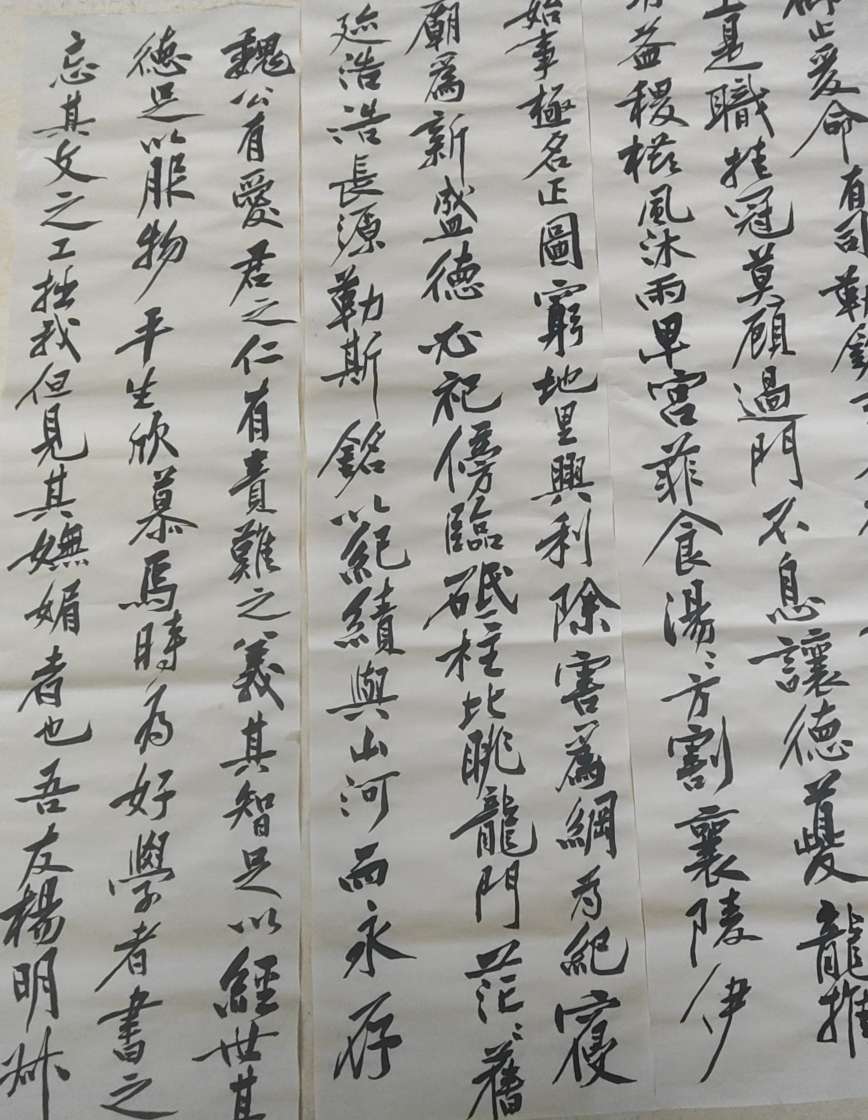 爰命有司勒銘
土是職挂冠莫顧過門不息讓德夔龍推
益稷櫛風沐雨卑宮菲食湯〻方割襄陵伊
始事極名正圖窮地里興利除害為綱為紀寢
廟為新盛德必祀傍臨砥柱北眺龍門茫〻舊
迹浩浩長源勒斯銘以紀績與山河而永存
魏公有愛君之仁有責難之義其智足以經世其
德足以服物平生欣慕焉時為好學者書之
忘其文之工拙我但見其嫵媚者也吾友楊明叔